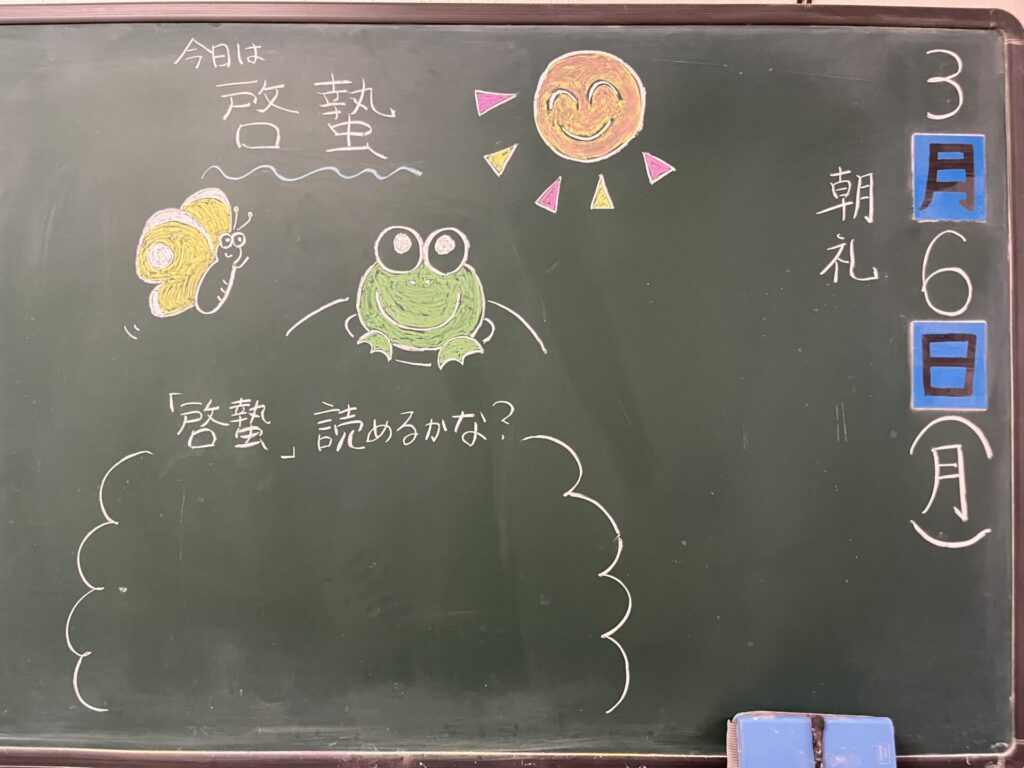 今日は
啓蟄
「啓蟄」読めるかな?
3月6日(月)
朝礼